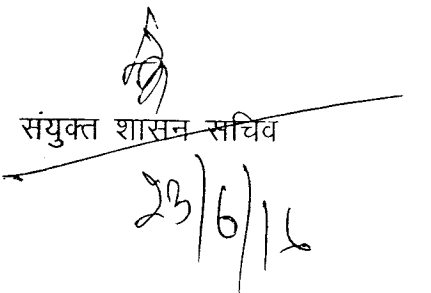 संयुक्त शासन सचिव
23/6/16